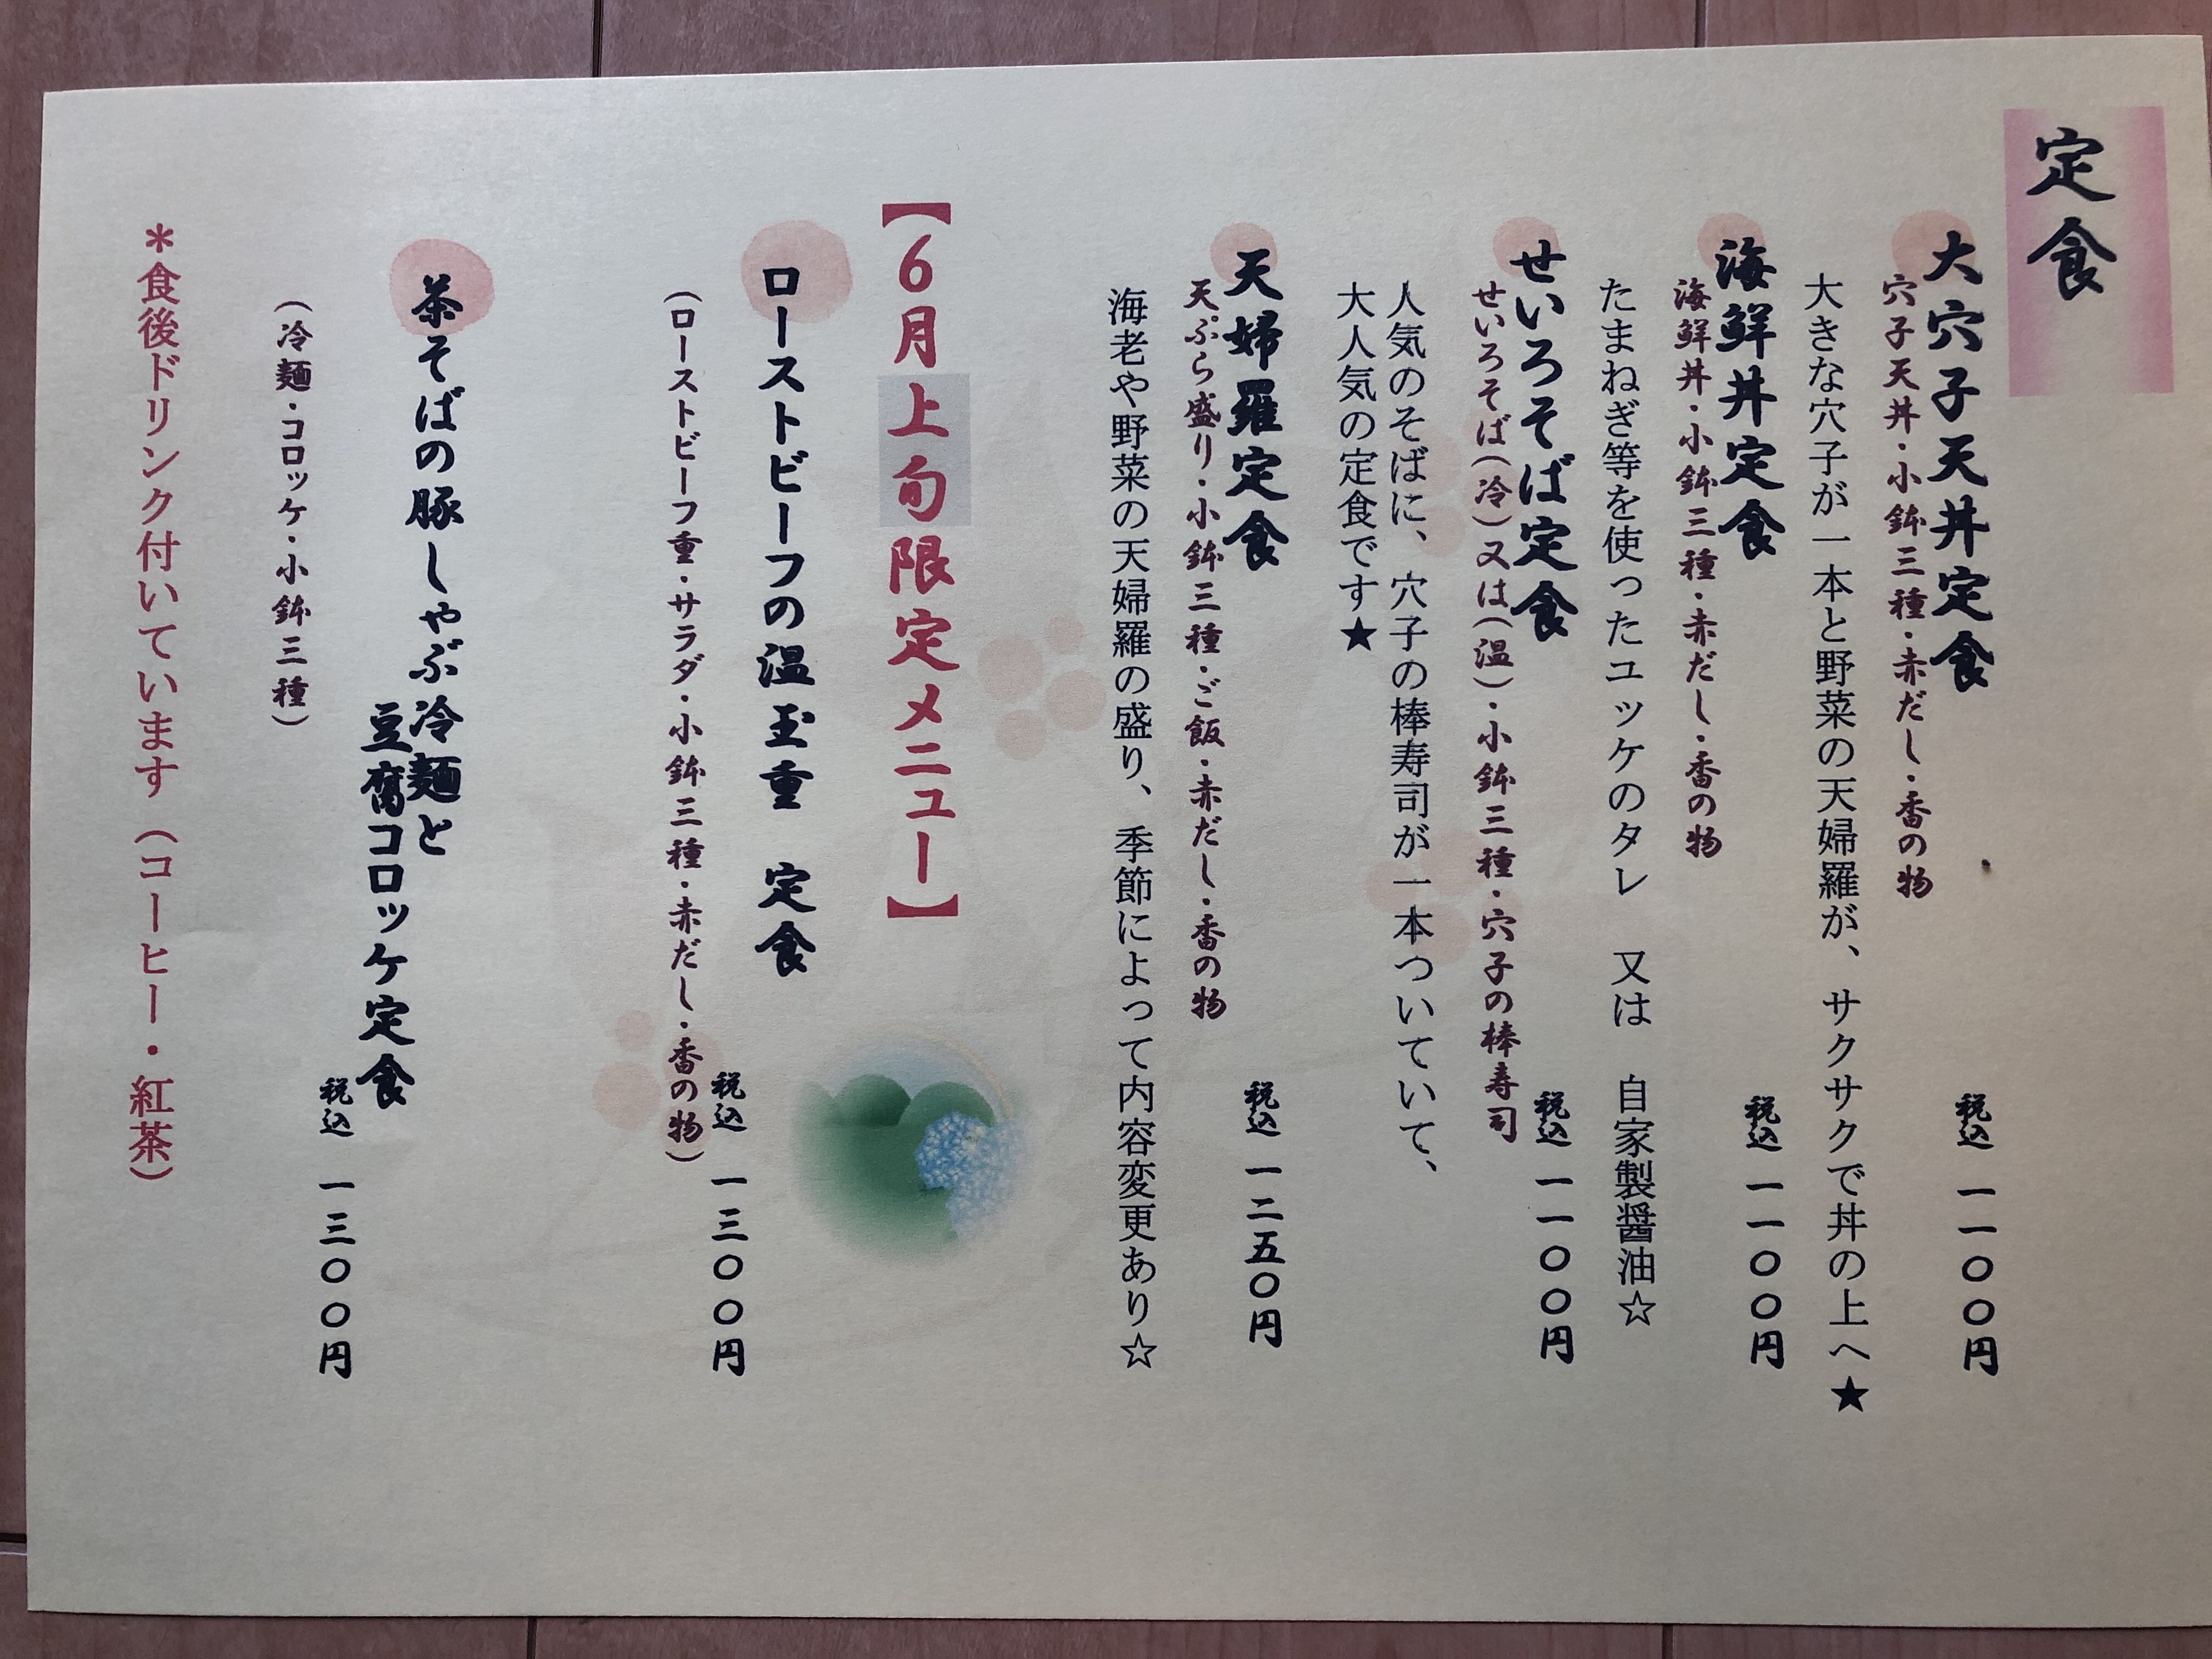 定食
大穴子天丼定食
穴子天丼・小鉢三種・赤だし・香の物
税込 一一〇〇円
大きな穴子が一本と野菜の天婦羅が、サクサクで丼の上へ★
海鮮丼定食
海鮮丼・小鉢三種・赤だし・香の物
税込 一一〇〇円
たまねぎ等を使ったユッケのタレ 又は 自家製醤油☆
せいろそば定食
せいろそば(冷)又は(温)・小鉢三種・穴子の棒寿司
税込 一一〇〇円
人気のそばに、穴子の棒寿司が一本ついていて、
大人気の定食です★
天婦羅定食
天ぷら盛り・小鉢三種・ご飯・赤だし・香の物
税込 一二五〇円
海老や野菜の天婦羅の盛り、季節によって内容変更あり☆
【6月上旬限定メニュー】
ローストビーフの温玉重 定食
税込 一三〇〇円
(ローストビーフ重・サラダ・小鉢三種・赤だし・香の物)
茶そばの豚しゃぶ冷麺と
豆腐コロッケ定食
税込 一三〇〇円
(冷麺・コロッケ・小鉢三種)
＊食後ドリンク付いています(コーヒー・紅茶)